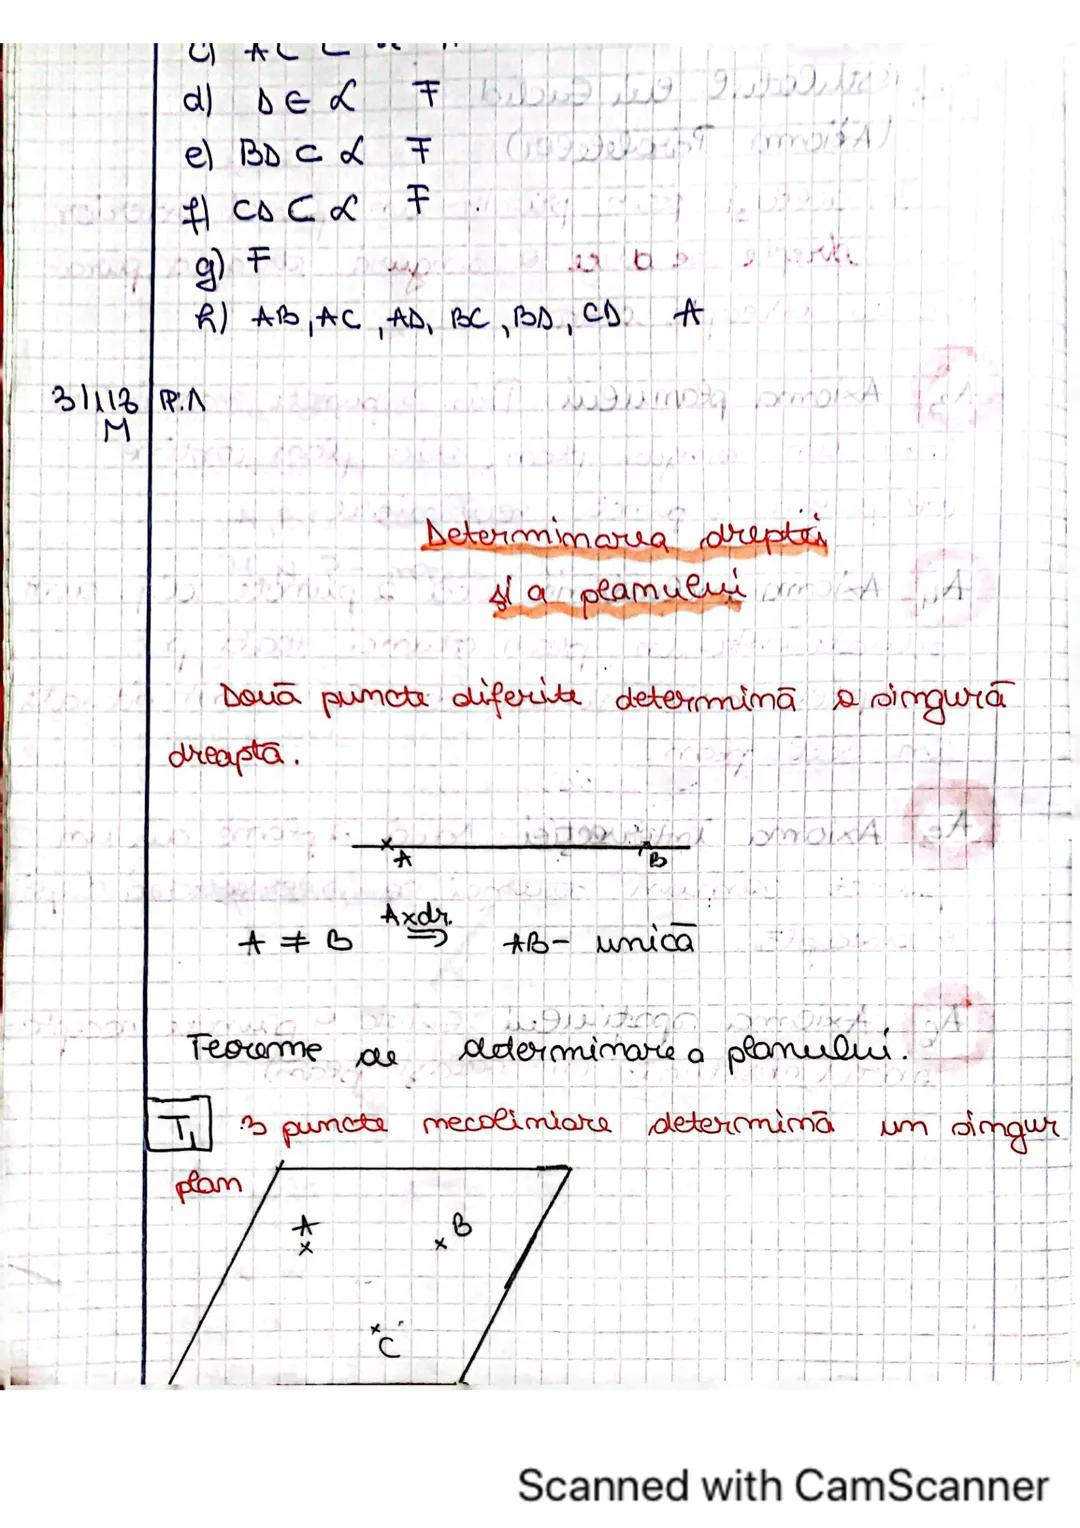 d) D ∈ α F
e) BD ⊂ α F
f) CD ⊂ α F
g) F
h) AB, AC, AD, BC, BD, CD A
3/113 P.Λ
M
Determinarea dreptei
și a planului
Două puncte diferite determină o singură
dreaptă.
A B
A ≠ B Axdr. ⟹ AB - unică
Teoreme de determinare a planului.
T₁ 3 puncte necoliniare determină un singur
plan
A B
C
Scanned with CamScanner